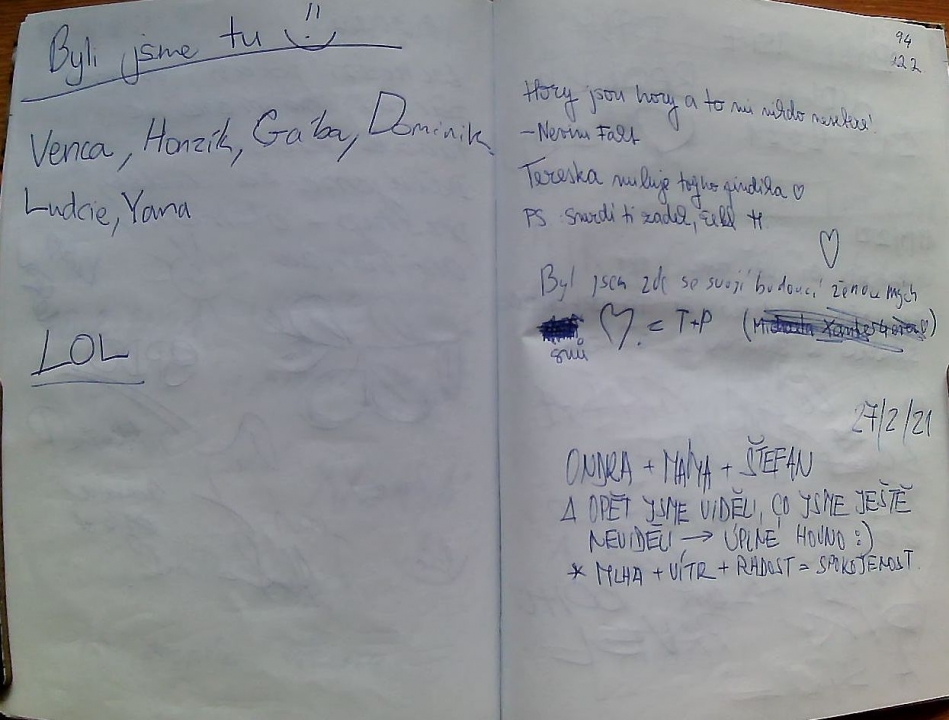 Byli jsme tu !!
Venca, Honzík, Gába, Dominik
Ludcie, Yana
LOL
94
122
Hory jsou hory a to mi nikdo nevezme!
Tereska miluje
PS: Smrdí ti zadek,
Byl jsem zde se svojí budoucí ženou mých
snů ♡ = T+P
27/2/21
ONDRA + MÁŇA + ŠTEFAN
Δ OPĚT JSME VIDĚLI, CO JSME JEŠTĚ
NEVIDĚLI → ÚPLNÉ HOVNO :)
* MLHA + VÍTR + RADOST = SPOKOJENOST.